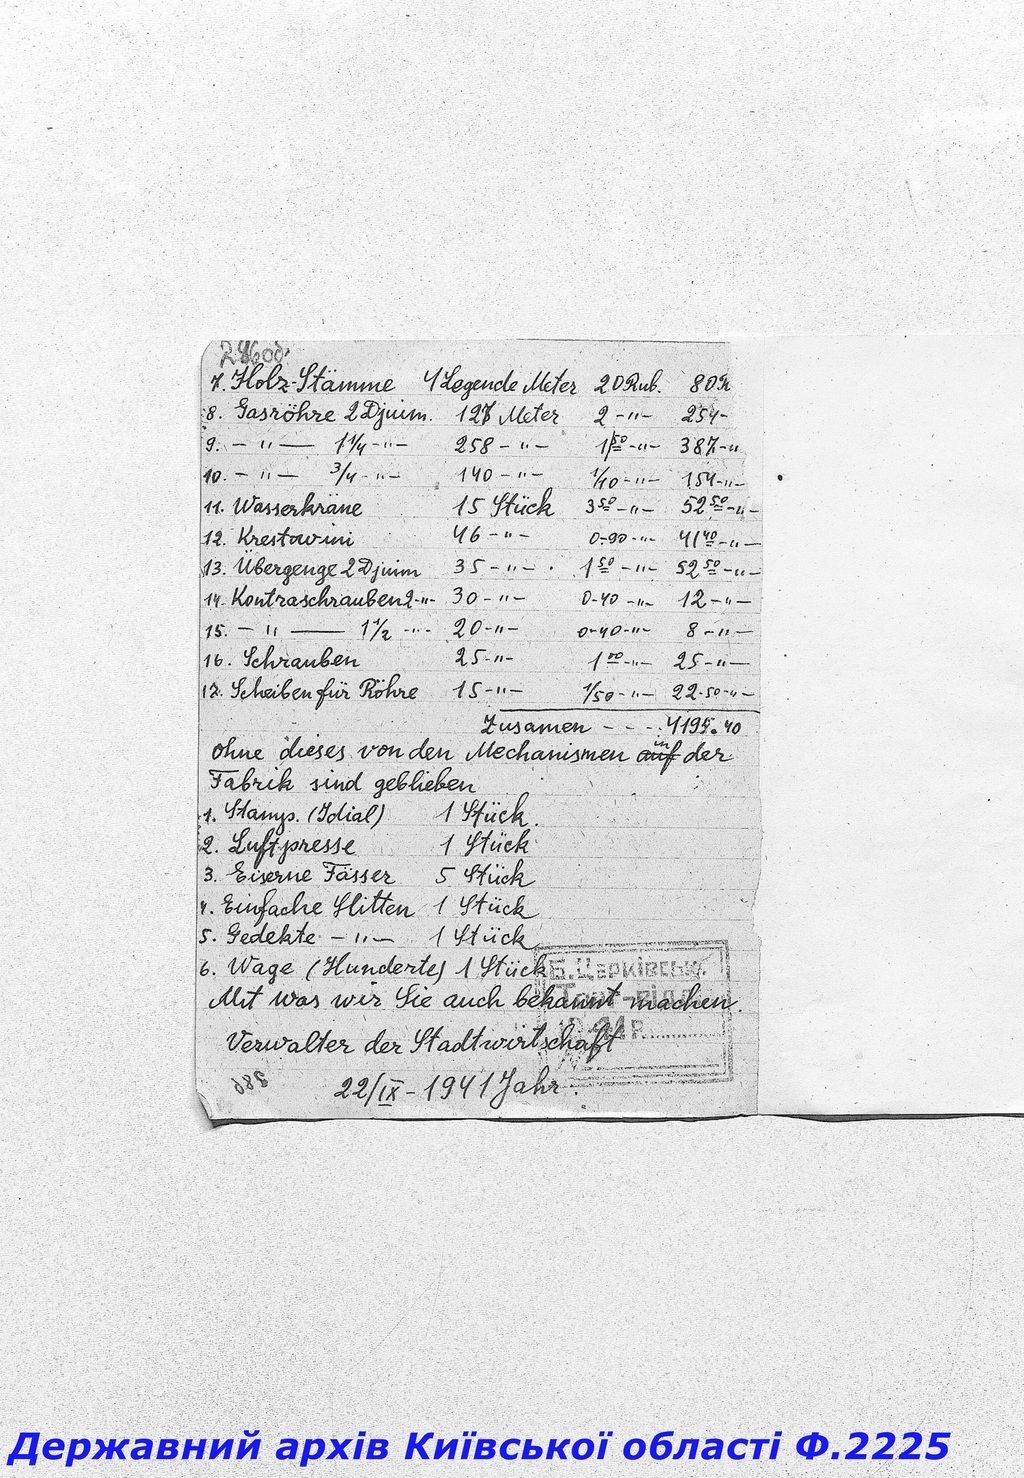 7. Holz-Stämme 4 Legende Meter 20 Rub. 80 R
8. Gasröhre 2 Djuim. 127 Meter 2 -"- 254-
9. - " — 1 1/4 -"- 258 - "- 1 50 -"- 387-"
10. - " — 3/4 -"- 140 - "- 1/10 -"- 154-"-
11. Wasserkräne 15 Stück 3 50 -"- 52 50 -"-
12. Krestowini 46 - "- 0-90 -"- 41 40 -"-
13. Übergenge 2 Djuim 35 - "- 1 50 -"- 52 50 -"-
14. Kontraschrauben 2 -"- 30 - "- 0-40 -"- 12 -"-
15. - " — 1 1/2 -"- 20 -"- 0-40 -"- 8 -"-
16. Schrauben 25 -"- 1 00 -"- 25 -"-
17. Scheiben für Röhre 15 -"- 1/50 -"- 22-50 -"-
Zusamen - - - 4195.40
ohne dieses von den Mechanismen in der
Fabrik sind geblieben
1. Stamp. (Idial) 1 Stück.
2. Luftpresse 1 Stück
3. Eiserne Fässer 5 Stück
4. Einfache Slitten 1 Stück
5. Gedekte - " - 1 Stück
6. Wage (Hunderte) 1 Stück
Б. Церківськ.
Mit was wir Sie auch bekannt machen.
Verwalter der Stadtwirtschaft
22/IX - 1941 Jahr.
Державний архів Київської області Ф.2225